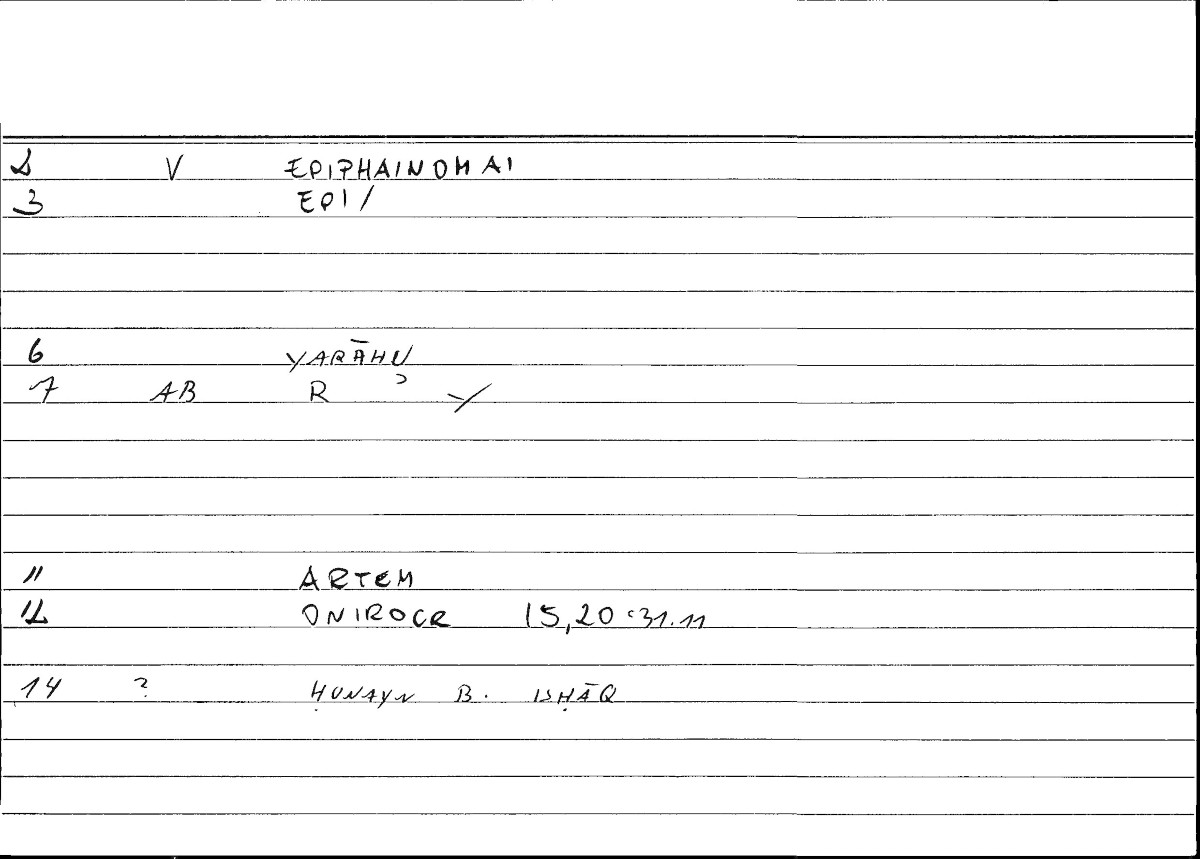 2 V EPIPHAINOMAI
3 EPI/
6 YARĀHU
7 AB R ʾ Y
11 ARTEM
12 ONIROCR 15,20:31.11
14 ? ḤUNAYN B. ISḤĀQ